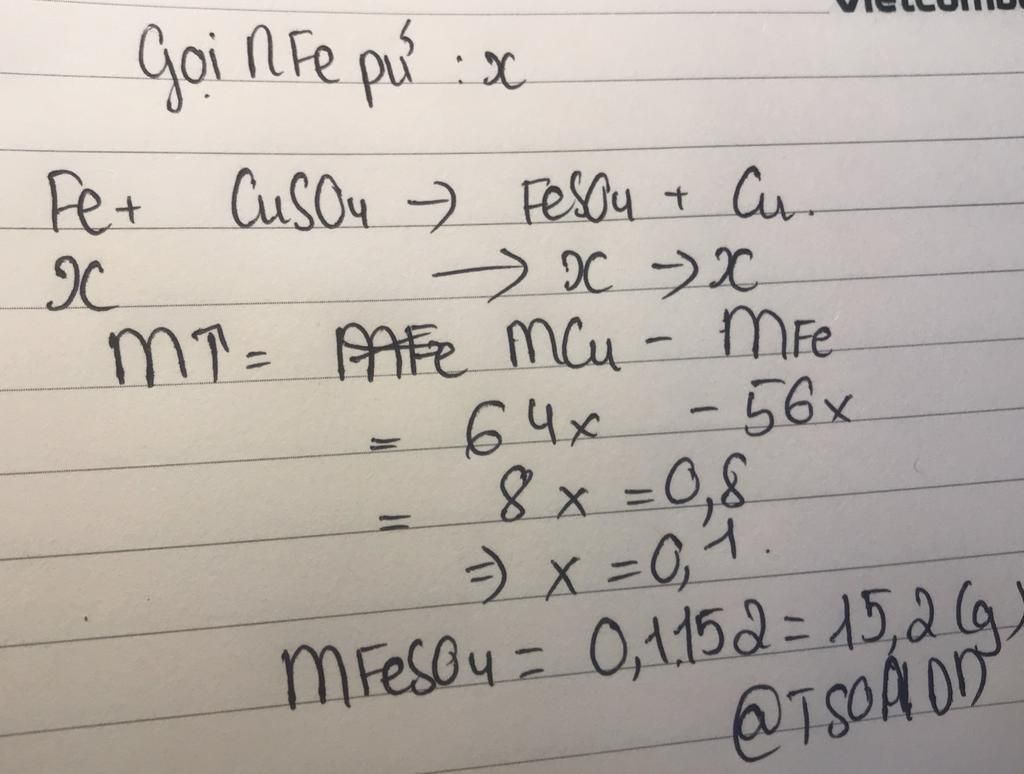 Vietcomb
Gọi nFe pứ : x
Fe + CuSO4 → FeSO4 + Cu.
x → x → x
m↑ = mFe mCu - mFe
= 64x - 56x
= 8x = 0,8
=> x = 0,1.
mFeSO4 = 0,1.152 = 15,2 (g)